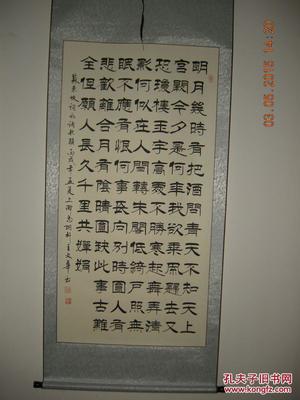 明月幾時有把酒問青天不知天上
宮闕今夕是何年我欲乘風歸去又
恐瓊樓玉宇高處不勝寒起舞弄清
影何似在人間轉朱閣低綺戶照無
眠不應有恨何事長向別時圓人有
悲歡離合月有陰晴圓缺此事古難
全但願人長久千里共嬋娟
蘇東坡詞水調歌頭丙戌年孟夏上瀚
03.05.2015 14:20
孔夫子旧书网